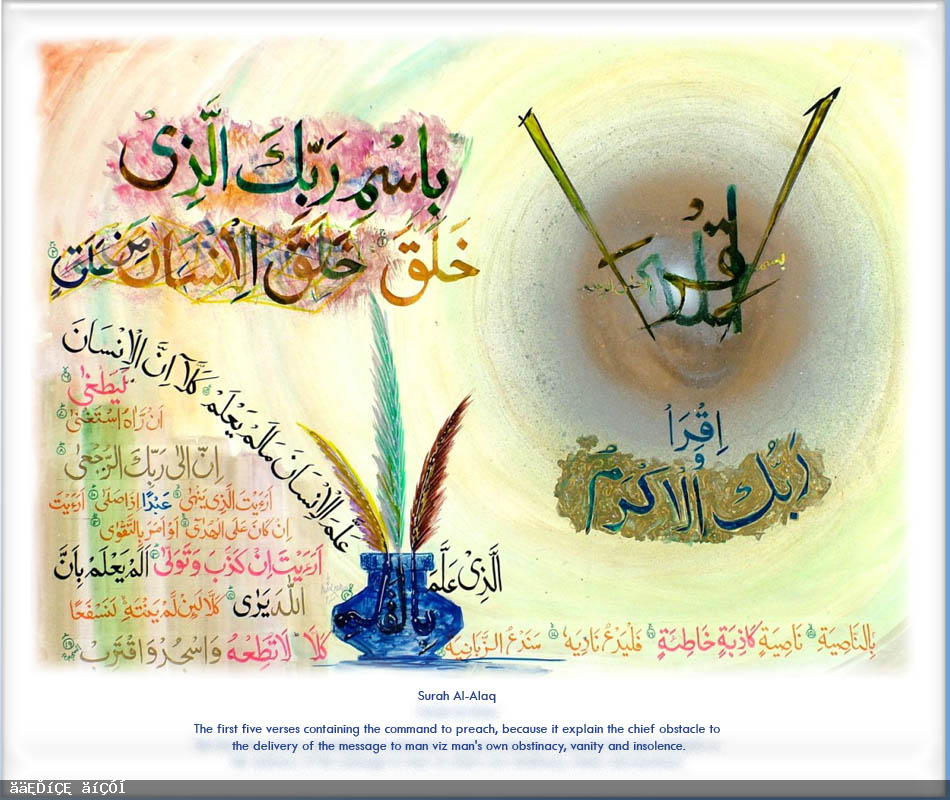 بِاسْمِ رَبِّكَ الَّذِىْ
خَلَقَ خَلَقَ الْاِنْسَانَ مِنْ عَلَقٍ
اِقْرَاْ
وَ رَبُّكَ الْاَكْرَمُ
الَّذِىْ عَلَّمَ
بِالْقَلَمِ
عَلَّمَ الْاِنْسَانَ مَالَمْ يَعْلَمْ كَلَّآ اِنَّ الْاِنْسَانَ
لَيَطْغٰى
اَنْ رَّاٰهُ اسْتَغْنٰى
اِنَّ اِلٰى رَبِّكَ الرُّجْعٰى
اَرَءَيْتَ الَّذِىْ يَنْهٰى عَبْدًا اِذَا صَلّٰى اَرَءَيْتَ
اِنْ كَانَ عَلَى الْهُدٰٓى اَوْ اَمَرَ بِالتَّقْوٰى
اَرَءَيْتَ اِنْ كَذَّبَ وَتَوَلّٰى اَلَمْ يَعْلَمْ بِاَنَّ
اللّٰهَ يَرٰى كَلَّا لَئِنْ لَّمْ يَنْتَهِ لَنَسْفَعًا
بِالنَّاصِيَةِ نَاصِيَةٍ كَاذِبَةٍ خَاطِئَةٍ فَلْيَدْعُ نَادِيَهٗ سَنَدْعُ الزَّبَانِيَةَ
كَلَّا لَا تُطِعْهُ وَاسْجُدْ وَاقْتَرِبْ
Surah Al-Alaq
The first five verses containing the command to preach, because it explain the chief obstacle to
the delivery of the message to man viz man's own obstinacy, vanity and insolence.